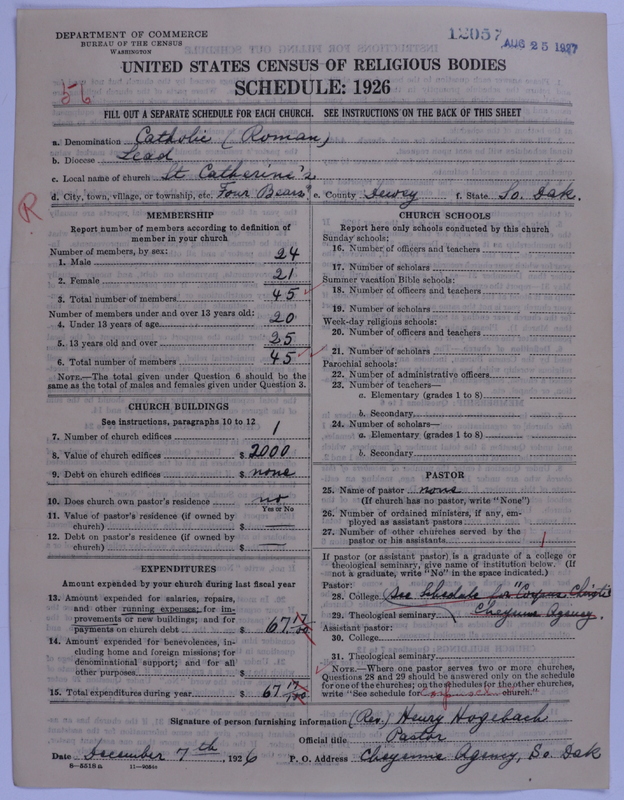 DEPARTMENT OF COMMERCE
BUREAU OF THE CENSUS
WASHINGTON
12057
AUG 25 1927
UNITED STATES CENSUS OF RELIGIOUS BODIES
SCHEDULE: 1926
56
FILL OUT A SEPARATE SCHEDULE FOR EACH CHURCH. SEE INSTRUCTIONS ON THE BACK OF THIS SHEET
a. Denomination Catholic (Roman)
b. Diocese Lead
c. Local name of church St Catherine's
d. City, town, village, or township, etc. Four Bears e. County Dewey f. State So. Dak.
R
MEMBERSHIP
Report number of members according to definition of
member in your church
Number of members, by sex:
1. Male 24
2. Female 21
3. Total number of members 45
Number of members under and over 13 years old:
4. Under 13 years of age 20
5. 13 years old and over 25
6. Total number of members 45
NOTE.—The total given under Question 6 should be the
same as the total of males and females given under Question 3.
CHURCH BUILDINGS
See instructions, paragraphs 10 to 12
7. Number of church edifices 1
8. Value of church edifices $ 2000
9. Debt on church edifices $ none
10. Does church own pastor's residence no
Yes or No
11. Value of pastor's residence (if owned by
church) $ —
12. Debt on pastor's residence (if owned by
church) $ —
EXPENDITURES
Amount expended by your church during last fiscal year
13. Amount expended for salaries, repairs,
and other running expenses; for im-
provements or new buildings; and for
payments on church debt $ 67.17
14. Amount expended for benevolences, in-
cluding home and foreign missions; for
denominational support; and for all
other purposes $
15. Total expenditures during year $ 67 17
CHURCH SCHOOLS
Report here only schools conducted by this church
Sunday schools:
16. Number of officers and teachers
17. Number of scholars
Summer vacation Bible schools:
18. Number of officers and teachers
19. Number of scholars
Week-day religious schools:
20. Number of officers and teachers
21. Number of scholars
Parochial schools:
22. Number of administrative officers
23. Number of teachers—
a. Elementary (grades 1 to 8)
b. Secondary
24. Number of scholars—
a. Elementary (grades 1 to 8)
b. Secondary
PASTOR
25. Name of pastor none
(If church has no pastor, write "None")
26. Number of ordained ministers, if any, em-
ployed as assistant pastors
27. Number of other churches served by the
pastor or his assistants 1
If pastor (or assistant pastor) is a graduate of a college or
theological seminary, give name of institution below. (If
not a graduate, write "No" in the space indicated.)
Pastor:
28. College See Schedule for "Corpus Christi"
29. Theological seminary Cheyenne Agency.
Assistant pastor:
30. College
31. Theological seminary
NOTE.—Where one pastor serves two or more churches,
Questions 28 and 29 should be answered only on the schedule
for one of the churches; on the schedules for the other churches,
write "See schedule for church."
Signature of person furnishing information (Rev.) Henry Hogebach
Official title Pastor
Date December 7th, 1926 P. O. Address Cheyenne Agency, So. Dak
8—5518 a 11—9054a